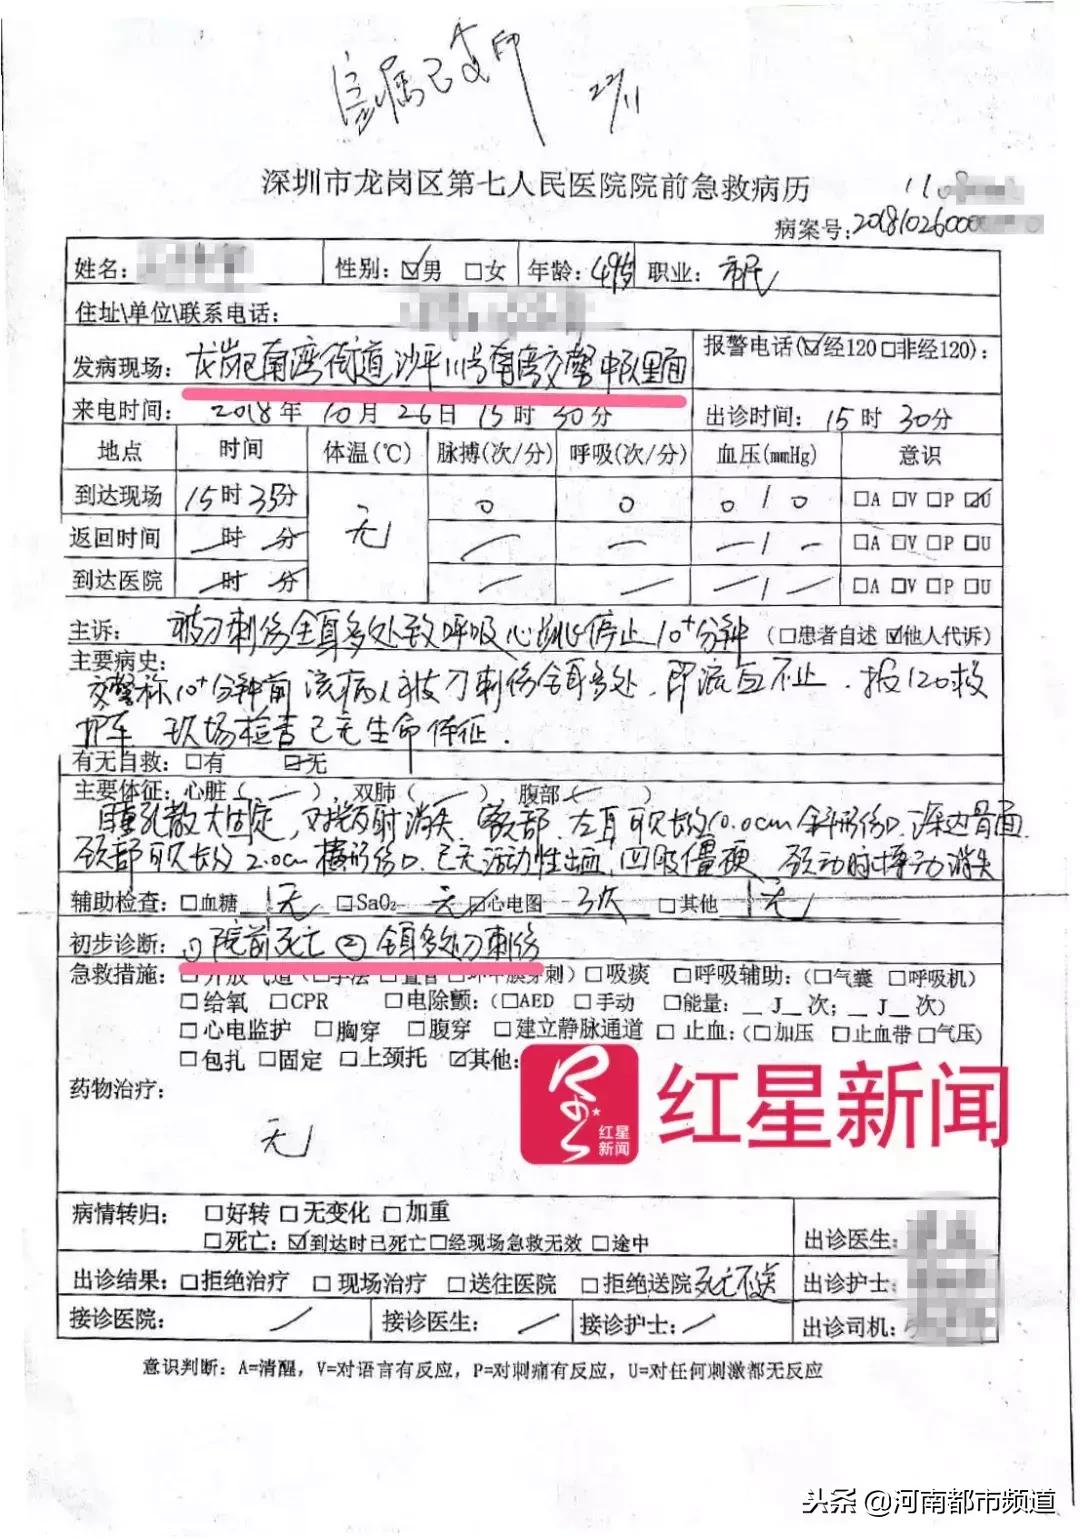 家属已复印 22/11
深圳市龙岗区第七人民医院院前急救病历
病案号:2018102600
姓名: 性别: ☑男 □女 年龄: 49岁 职业: 市民
住址\单位\联系电话:
发病现场: 龙岗区南湾街道沙平 南湾交警中队里面 报警电话(☑经120□非经120):
来电时间: 2018年10月26日15时30分 出诊时间: 15时30分
地点 时间 体温(℃) 脉搏(次/分) 呼吸(次/分) 血压(mmHg) 意识
到达现场 15时35分 无 0 0 0/0 □A □V □P ☑U
返回时间 — 时 — 分 — — —/— □A □V □P □U
到达医院 — 时 — 分 — — —/— □A □V □P □U
主诉: 被刀刺伤全身多处致呼吸心跳停止10⁺分钟 (□患者自述 ☑他人代诉)
主要病史:
交警称10⁺分钟前该病人被刀刺伤全身多处,即流血不止.报120救
护车 现场检查已无生命体征.
有无自救: □有 ☑无
主要体征: 心脏( — ), 双肺( — ) 腹部( — )
瞳孔散大固定,对光反射消失,额部、左耳可见长约10.0cm斜形伤口,深达骨面.
颈部可见长约2.0cm横形伤口.已无活动性出血,四肢僵硬,颈动脉搏动消失
辅助检查: □血糖 无 □SaO₂ 无 ☑心电图 3次 □其他 无
初步诊断: ①院前死亡 ②全身多处刀刺伤
急救措施: □开放气道(□手法 □置管 □环甲膜穿刺) □吸痰 □呼吸辅助: (□气囊 □呼吸机)
□给氧 □CPR □电除颤: (□AED □手动 □能量: _J_次; _J_次)
□心电监护 □胸穿 □腹穿 □建立静脉通道 □止血: (□加压 □止血带 □气压)
□包扎 □固定 □上颈托 ☑其他:
红星新闻
红星新闻
药物治疗:
无
病情转归: □好转 □无变化 □加重
□死亡: ☑到达时已死亡□经现场急救无效 □途中 出诊医生:
出诊结果: □拒绝治疗 □现场治疗 □送往医院 □拒绝送院 死亡不送 出诊护士:
接诊医院: / 接诊医生: / 接诊护士: / 出诊司机:
意识判断: A=清醒, V=对语言有反应, P=对刺痛有反应, U=对任何刺激都无反应
头条 @河南都市频道